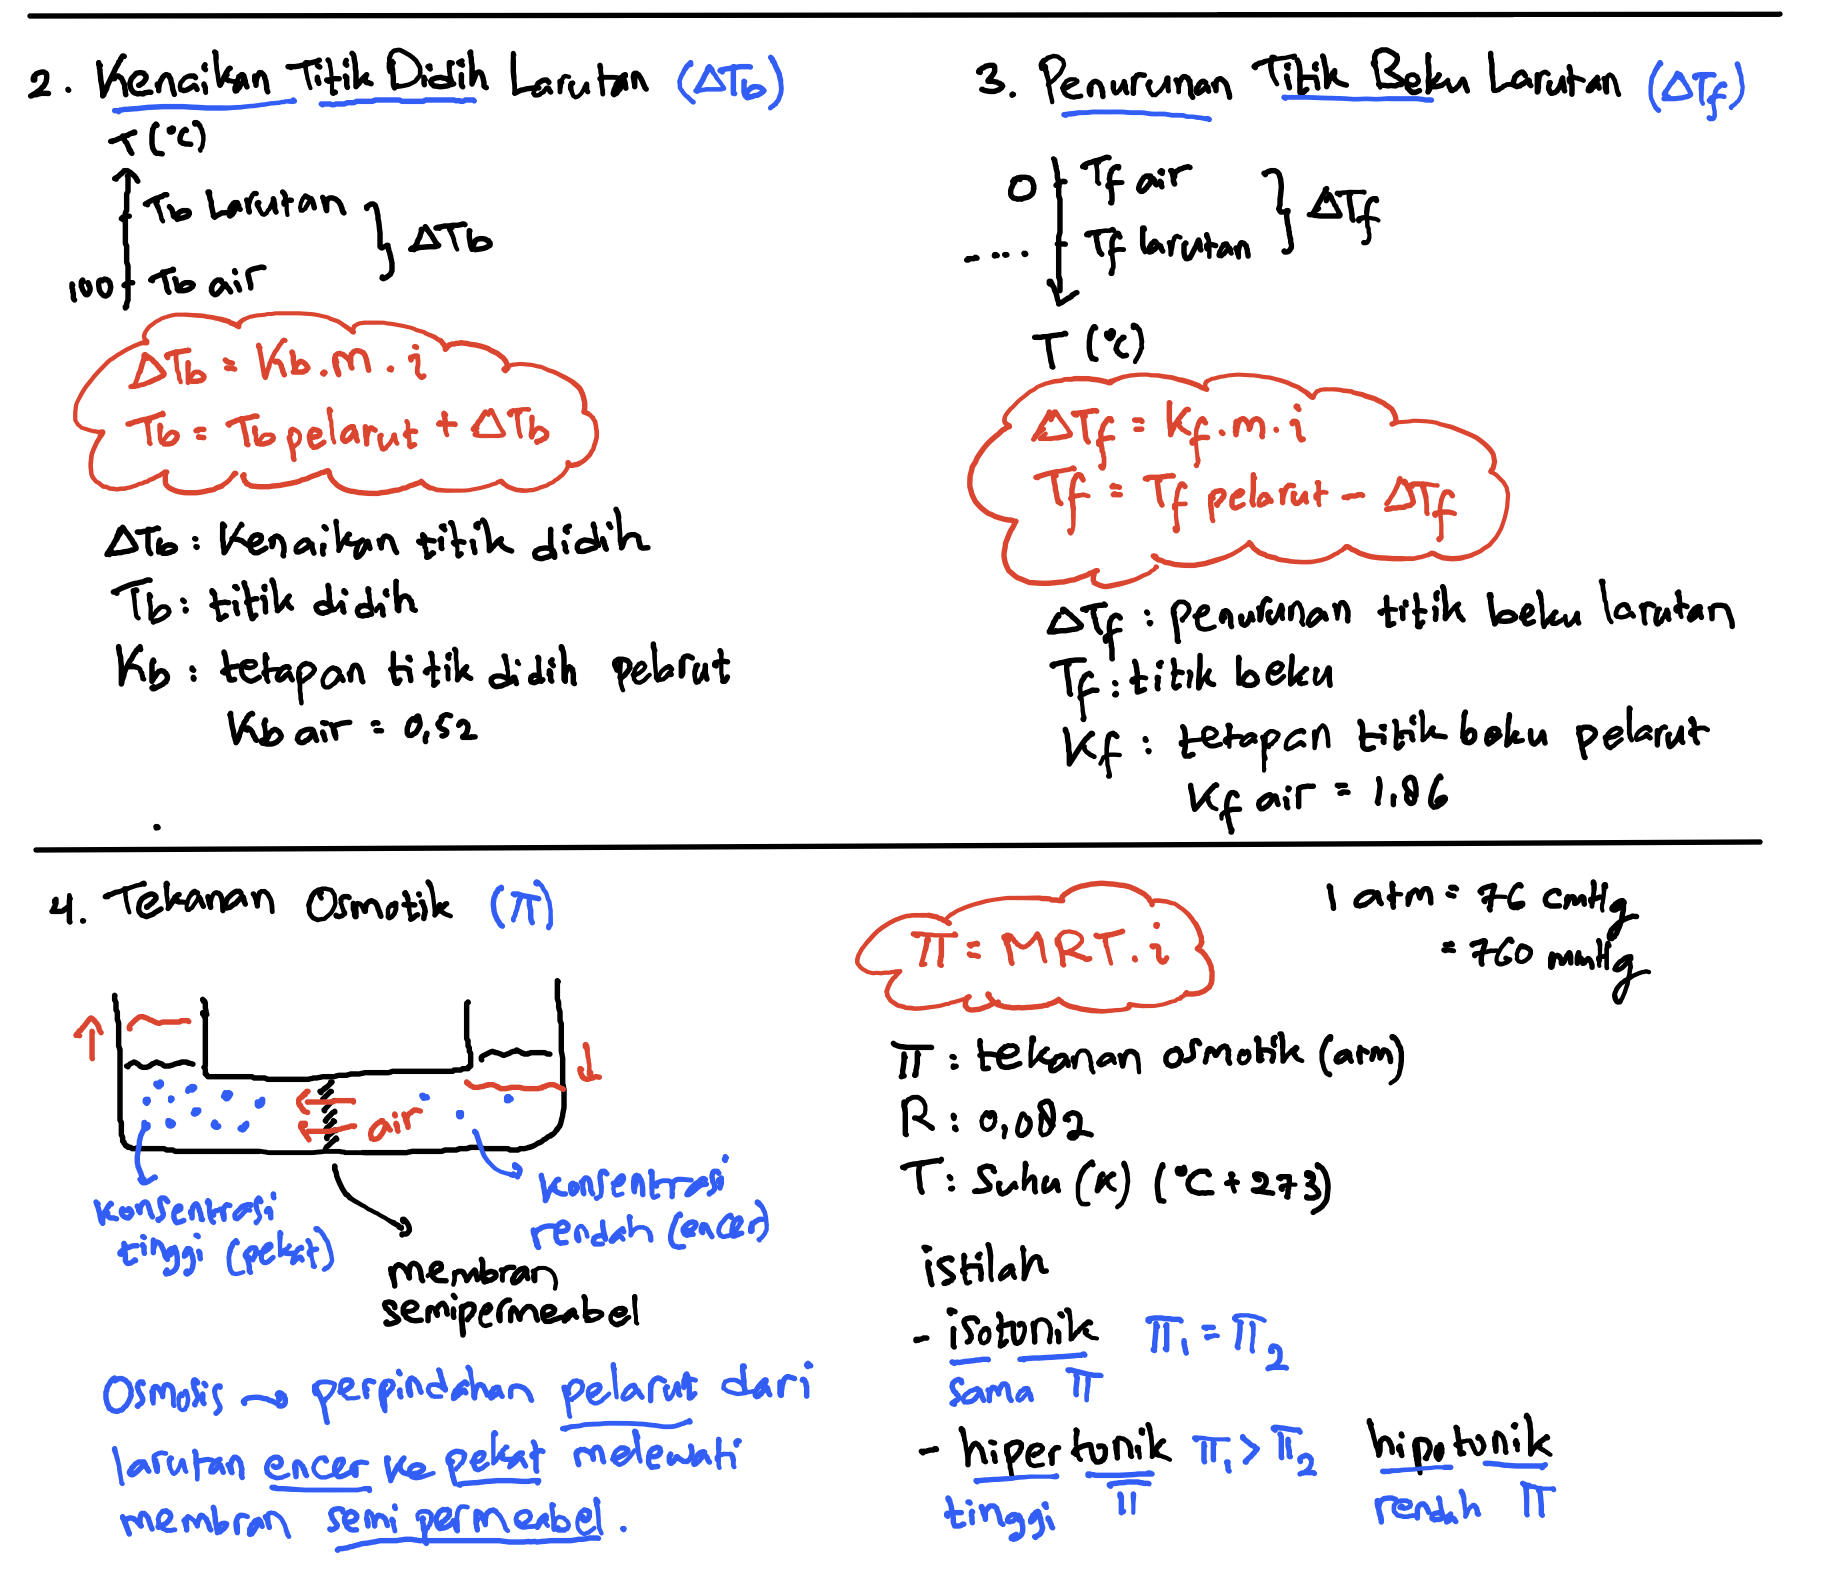 2. Kenaikan Titik Didih Larutan (ΔTb)
T (°C)
Tb Larutan
ΔTb
100 Tb air
ΔTb = Kb.m.i
Tb = Tb pelarut + ΔTb
ΔTb : Kenaikan titik didih
Tb : titik didih
Kb : tetapan titik didih pelarut
Kb air = 0,52
3. Penurunan Titik Beku Larutan (ΔTf)
0 Tf air
ΔTf
.... Tf larutan
T (°C)
ΔTf = Kf.m.i
Tf = Tf pelarut - ΔTf
ΔTf : penurunan titik beku larutan
Tf : titik beku
Kf : tetapan titik beku pelarut
Kf air = 1,86
4. Tekanan Osmotik (π)
air
konsentrasi
tinggi (pekat)
konsentrasi
rendah (encer)
membran
semipermeabel
Osmosis → perpindahan pelarut dari
larutan encer ke pekat melewati
membran semi permeabel.
π = MRT.i
1 atm = 76 cmHg
= 760 mmHg
π : tekanan osmotik (atm)
R : 0,082
T : Suhu (K) (°C + 273)
istilah
- isotonik π₁ = π₂
sama π
- hipertonik π₁ > π₂ hipotonik
tinggi π rendah π